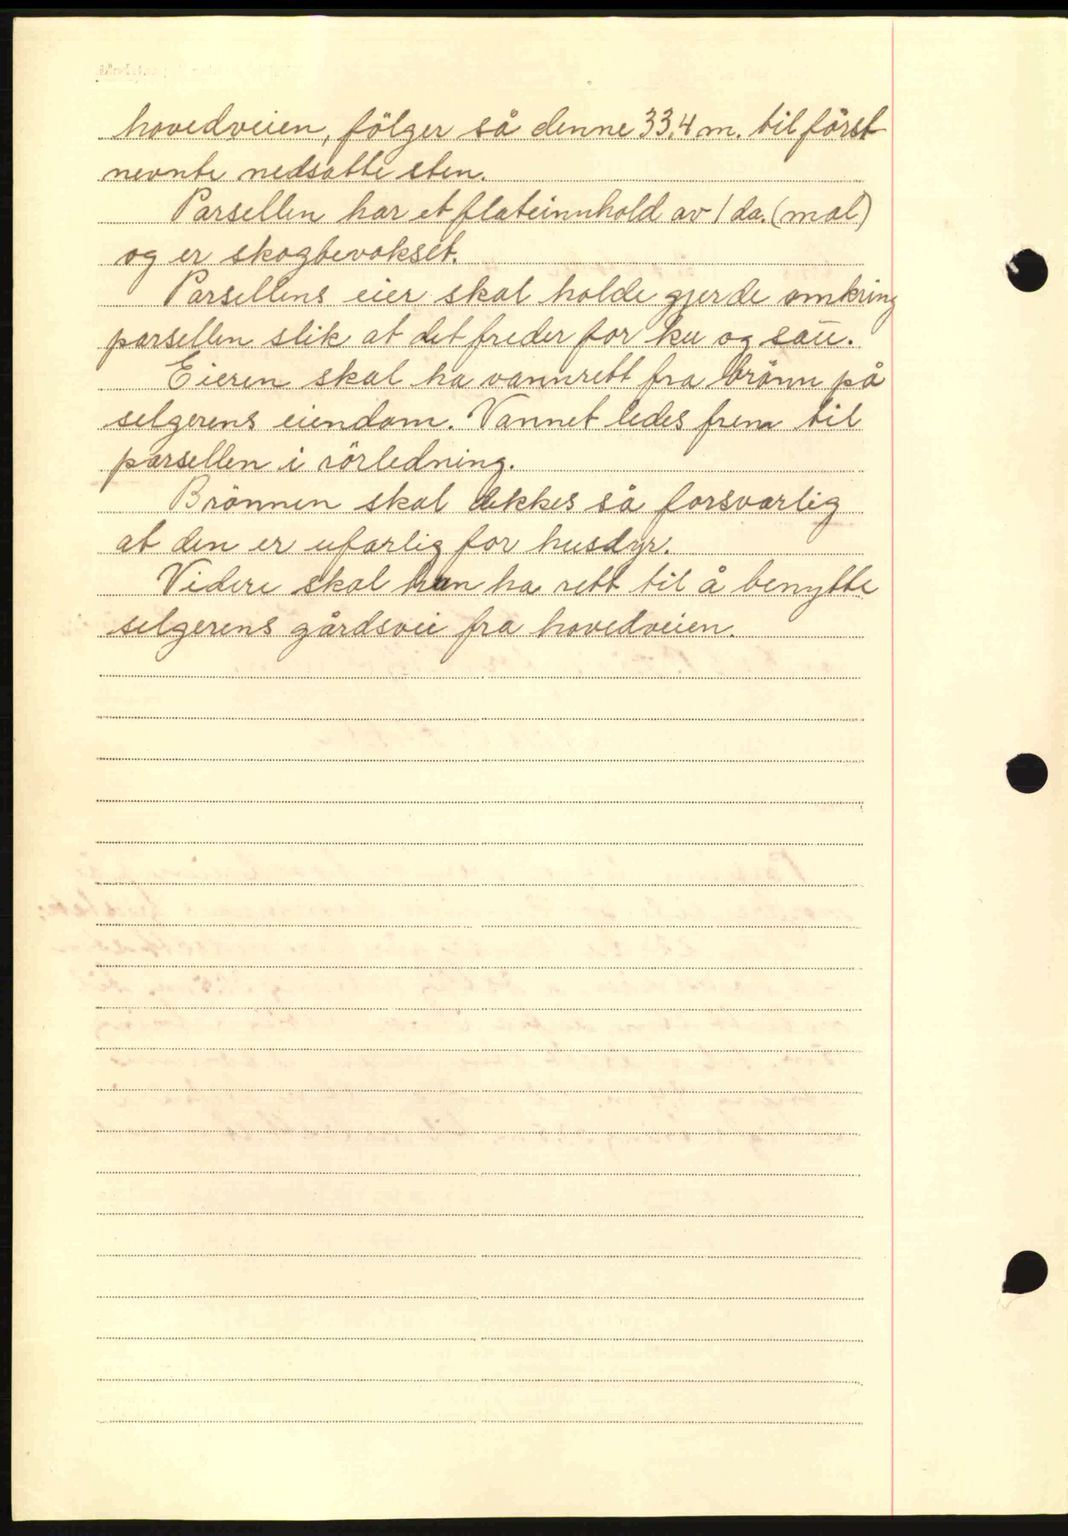 hovedveien, fölger så denne 33,4 m. til först
nevnte nedsatte sten.
Parsellen har et flateinnhold av 1 da. (mål)
og er skogbevokset.
Parsellens eier skal holde gjerde omkring
parsellen slik at det freder for ku og sau.
Eieren skal ha vannrett fra brönn på
selgerens eiendom. Vannet ledes frem til
parsellen i rörledning.
Brönnen skal dekkes så forsvarlig
at den er ufarlig for husdyr.
Videre skal han ha rett til å benytte
selgerens gårdsvei fra hovedveien.